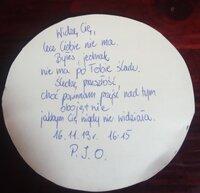 Widzę Cię,
lecz Ciebie nie ma.
Byłeś, jednak
nie ma po Tobie śladu.
Śledzę przeszłość,
choć powinnam przejść nad tym
obojętnie
jakbym Cię nigdy nie widziała.
16.11.19r. 16:15
P.J.O.